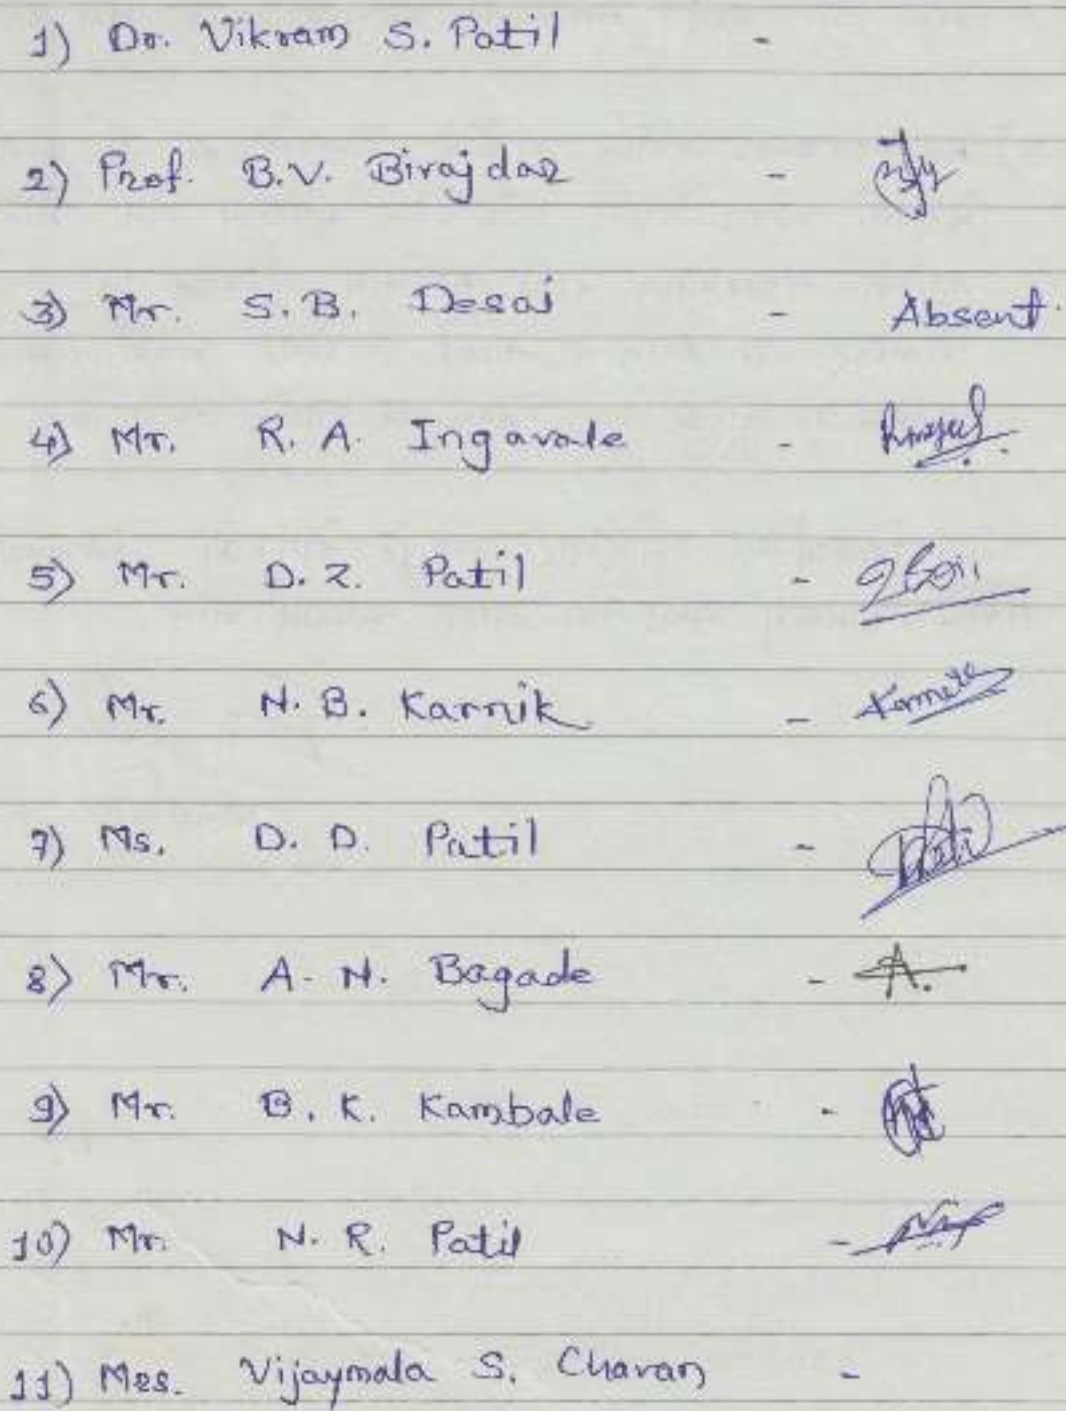 1) Dr. Vikram S. Patil -
2) Prof. B.V. Birajdar -
3) Mr. S.B. Desai - Absent.
4) Mr. R.A. Ingavale -
5) Mr. D.Z. Patil -
6) Mr. N.B. Karnik -
7) Ms. D.D. Patil -
8) Mr. A.N. Bagade - A.
9) Mr. B.K. Kambale -
10) Mr. N.R. Patil -
11) Mrs. Vijaymala S. Chavan -